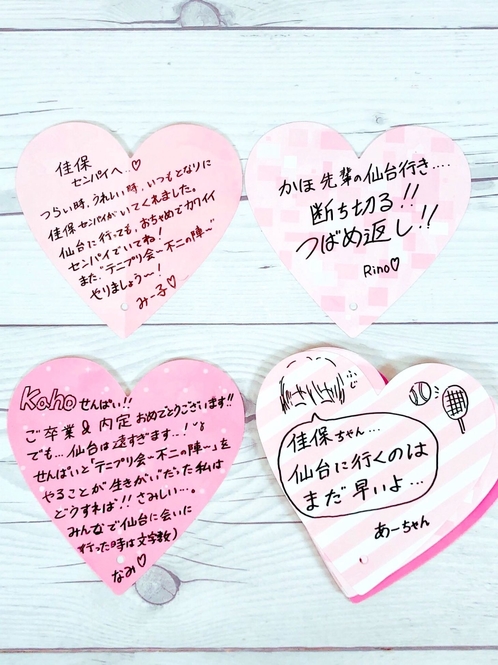 佳保
センパイへ…♡
つらい時、うれしい時、いつもとなりに
佳保センパイがいてくれました。
仙台に行っても、おちゃめでカワイイ
センパイでいてね!
また、"テニプリ会~不二の陣~"
やりましょう~!
みー子♡
かほ先輩の仙台行き‥‥
断ち切る!!
つばめ返し!!
Rino♡
Kahoせんぱい!!
ご卒業&内定おめでとうございます!!
でも…仙台は遠すぎます…!
せんぱいと「テニプリ会~不二の陣~」を
やることが生きがいだった私は
どうすれば!!さみしい…。
みんなで仙台に会いに
行った時は文字数)
なみ♡
ふじ
佳保ちゃん…
仙台に行くのは
まだ早いよ…
あーちゃん